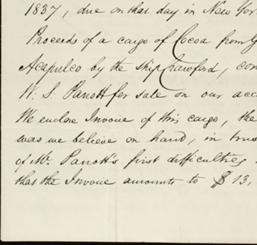 1837, due on that day in New Yor
Proceeds of a cargo of Cocoa from G
Acapulco by the ship Crawford, con
W. S. Parrott for sale on our acc
We enclose Invoice of this cargo, the
was we believe on hand, in trus
of Mr. Parrott's first difficulties
that the Invoice amounts to $13,